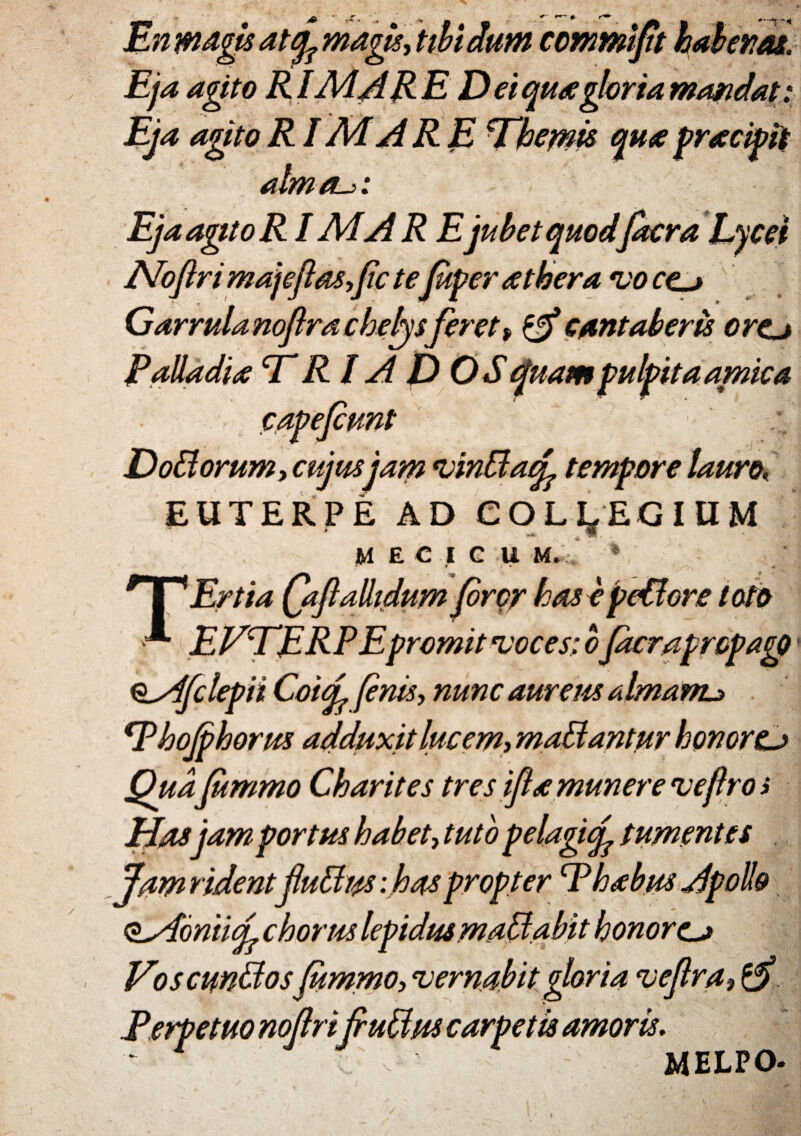 En magis atq; magis, tibi dum commiſit habenas.
Eja agito RIMARE Dei quæ gloria mandat:
Eja agito RIMARE Themis quæ præcipit
alma:
Eja agito RIMARE jubet quod ſacra Lycei
Noſtri majeſtas, ſic te ſuper æthera voce
Garrula noſtra chelys feret, & cantaberis ore
Palladiæ TRIADOS quam pulpita amica
capeſcunt
Doctorum, cujus jam vinctaq; tempore lauro.
EUTERPE AD COLLEGIUM
MECICUM.
TErtia Caſtallidum ſoror has è pectore toto
EVTERPE promit voces: ô ſacra propago
Aſclepii Coiq; ſenis, nunc aureus almam
Phoſphorus adduxit lucem, mactantur honore
Quâ ſummo Charites tres iſtæ munere veſtro;
Has jam portus habet, tutò pelagiq; tumentes
Jam rident fluctus: has propter Phæbus Apollo
Aoniiq; chorus lepidus mactabit honore
Vos cunctos ſummo, vernabit gloria veſtra, &
Perpetuo noſtri fructus carpetis amoris.
MELPO-